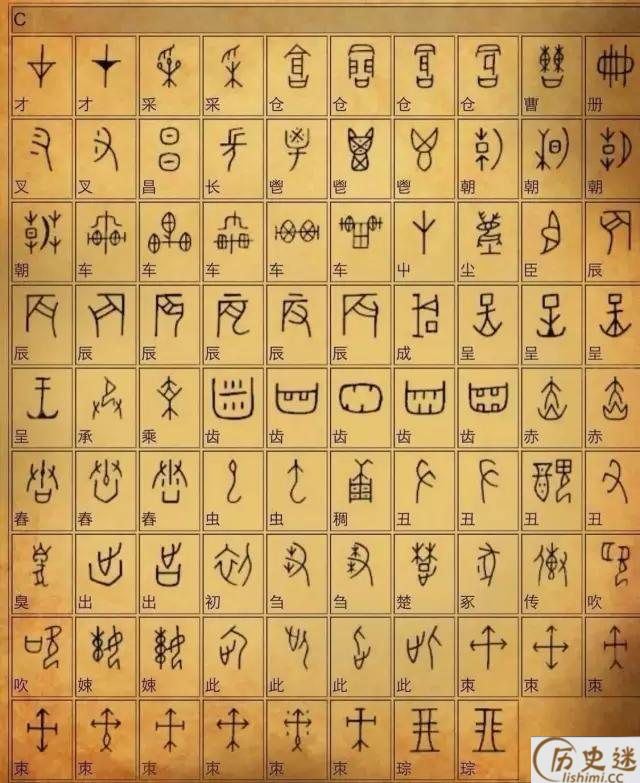 C
才 才 采 采 仓 仓 仓 仓 曹 册
叉 叉 昌 长 鬯 鬯 鬯 朝 朝 朝
朝 车 车 车 车 车 屮 尘 臣 辰
辰 辰 辰 辰 辰 辰 成 呈 呈 呈
呈 承 乘 齿 齿 齿 齿 齿 赤 赤
舂 舂 舂 虫 虫 稠 丑 丑 丑 丑
臭 出 出 初 刍 刍 楚 豖 传 吹
吹 娕 娕 此 此 此 此 朿 朿 朿
朿 朿 朿 朿 朿 朿 琮 琮
历史迷
lishimi.cc